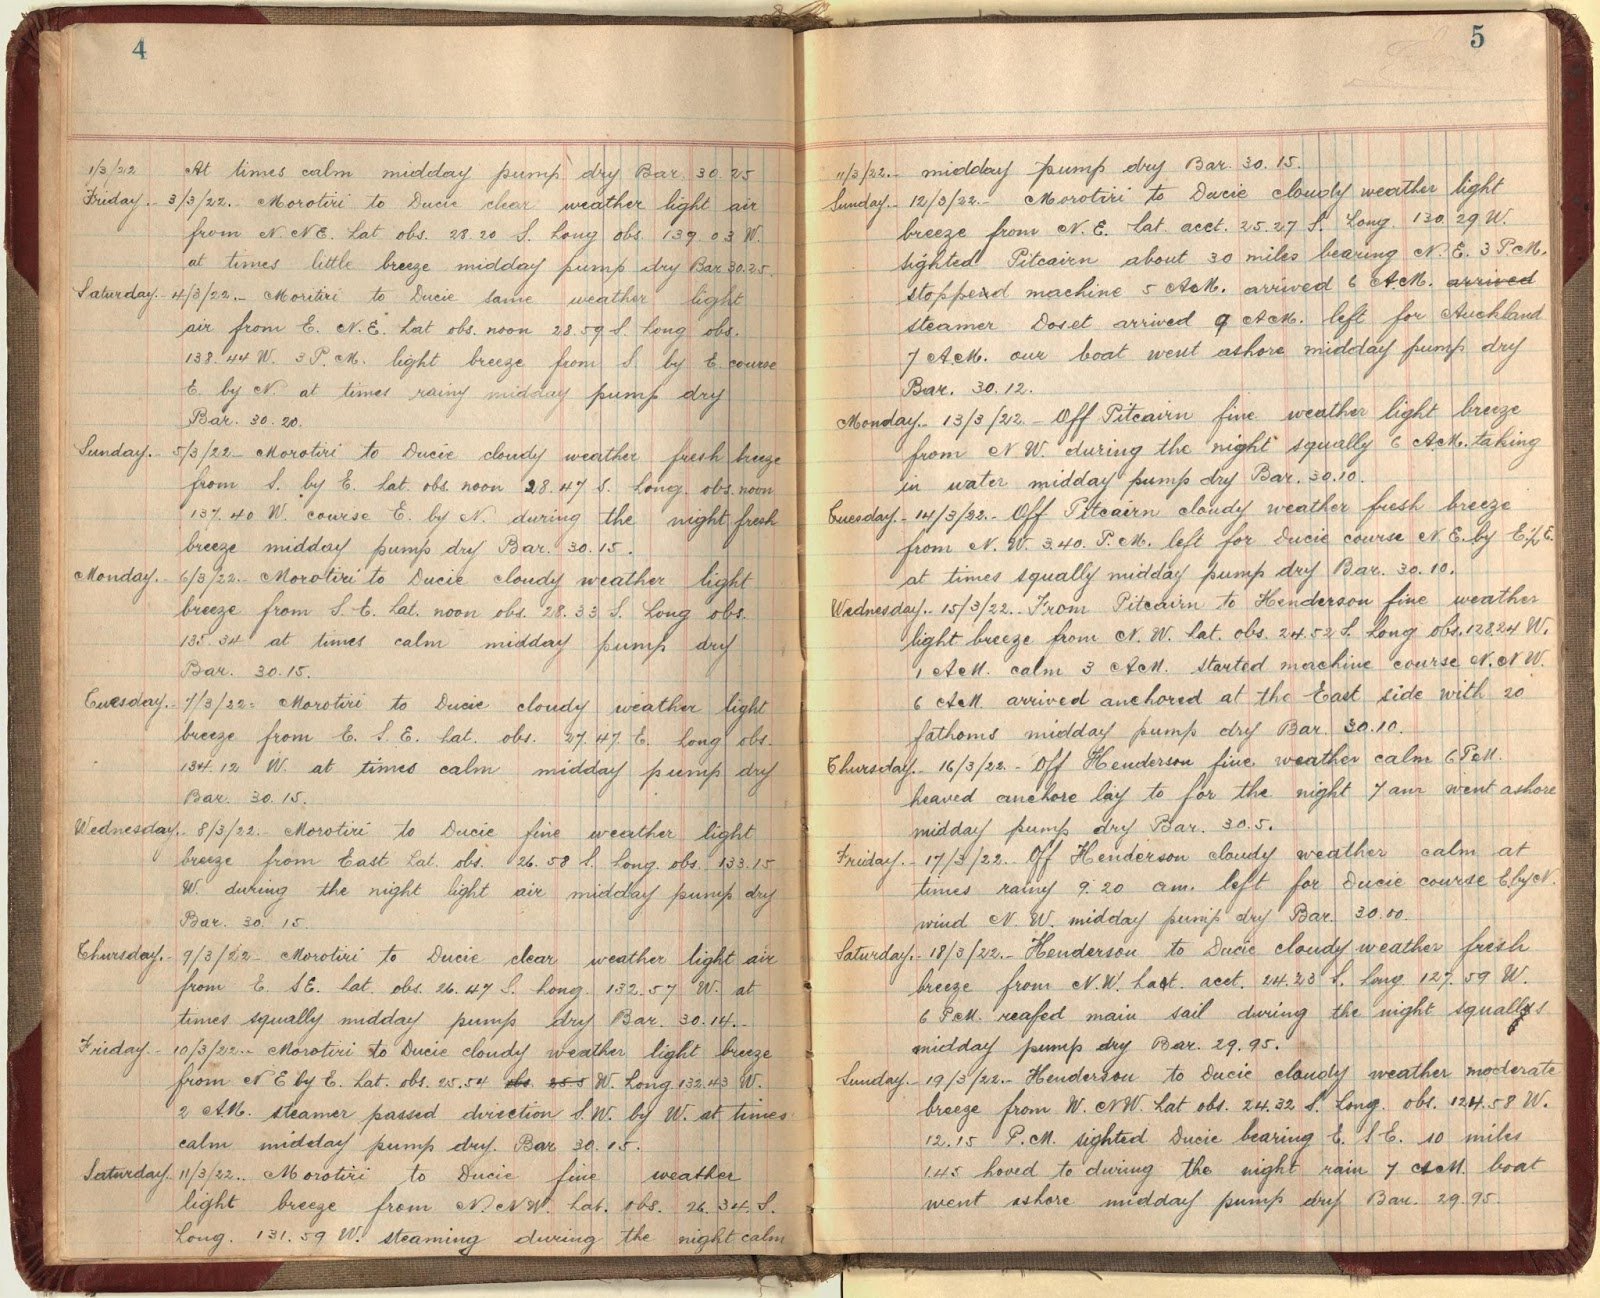 4
1/3/22 At times calm midday pump dry Bar. 30.25
Friday.- 3/3/22.- Morotiri to Ducie clear weather light air
from N. NE. Lat obs. 28.20 S. Long obs. 139.03 W.
at times little breeze midday pump dry Bar 30.25.
Saturday. 4/3/22.- Moritiri to Ducie same weather light
air from E. N.E. Lat obs. noon 28.59 S. Long obs.
138.44 W. 3 P.M. light breeze from S. by E. course
E. by N. at times rainy midday pump dry
Bar. 30.20.
Sunday.- 5/3/22- Morotiri to Ducie cloudy weather fresh breeze
from S. by E. Lat. obs. noon 28.47 S. Long. obs. noon
137.40 W. course E. by N. during the night fresh
breeze midday pump dry Bar. 30.15.
Monday.- 6/3/22- Morotiri to Ducie cloudy weather light
breeze from S. E. Lat. noon obs. 28.33 S. Long obs.
135.34 at times calm midday pump dry
Bar. 30.15.
Tuesday.- 7/3/22- Morotiri to Ducie cloudy weather light
breeze from E. S. E. Lat. obs. 27.47. E. Long obs.
134.12 W. at times calm midday pump dry
Bar. 30.15.
Wednesday.- 8/3/22.- Morotiri to Ducie fine weather light
breeze from East Lat. obs. 26.58 S. Long. obs. 133.15
W. during the night light air midday pump dry
Bar. 30.15.
Thursday.- 9/3/22- Morotiri to Ducie clear weather light air
from E. SE. Lat. obs. 26.47 S. Long. 132.57 W. at
times squally midday pump dry Bar. 30.14.-
Friday- 10/3/22.- Morotiri to Ducie cloudy weather light breeze
from N E by E. Lat. obs. 25.54 obs. 25 5 W. Long 132.43 W.
2 AM. steamer passed direction S.W. by W. at times
calm midday pump dry. Bar 30.15.
Saturday. 11/3/22.. Morotiri to Ducie fine weather
light breeze from N. NW. Lat. obs. 26.34 S.
Long. 131.59 W. steaming during the night calm
5
11/3/22.- midday pump dry Bar. 30.15.
Sunday.- 12/3/22.- Morotiri to Ducie cloudy weather light
breeze from N. E. Lat. acct. 25.27 S. Long. 130.29 W.
sighted Pitcairn about 30 miles bearing N. E. 3 P.M.
stopped machine 5 AM. arrived 6 AM. arrived
steamer Doset arrived 9 AM. left for Auckland
7 AM. our boat went ashore midday pump dry
Bar. 30.12.
Monday.- 13/3/22.- Off Pitcairn fine weather light breeze
from N W. during the night squally 6 AM. taking
in water midday pump dry Bar. 30.10.
Tuesday.- 14/3/22.- Off Pitcairn cloudy weather fresh breeze
from N. W. 3.40. P.M. left for Ducie course N E. by E ½ E.
at times squally midday pump dry Bar. 30.10.
Wednesday.- 15/3/22.- From Pitcairn to Henderson fine weather
light breeze from N. W. Lat. obs. 24.52 S. Long obs. 128.24 W.
1 AM. calm 3 AM. started machine course N. NW.
6 AM. arrived anchored at the East side with 20
fathoms midday pump dry Bar. 30.10.
Thursday.- 16/3/22.- Off Henderson fine weather calm 6 P.M.
heaved anchore lay to for the night 7 am went ashore
midday pump dry Bar. 30.5.
Friday.- 17/3/22.- Off Henderson cloudy weather calm at
times rainy 9.20 am. left for Ducie course E. by N.
wind N. W. midday pump dry Bar. 30.00.
Saturday.- 18/3/22.- Henderson to Ducie cloudy weather fresh
breeze from N.W. Lat. acct. 24.23 S. Long 127.59 W.
6 P.M. reafed main sail during the night squalls
midday pump dry Bar. 29.95.
Sunday.- 19/3/22.- Henderson to Ducie cloudy weather moderate
breeze from W. NW. Lat obs. 24.32 S. Long. obs. 124.58 W.
12.15 P.M. sighted Ducie bearing E. SE. 10 miles
1.45 hoved to during the night rain 7 AM. boat
went sshore midday pump dry Bar. 29.95.